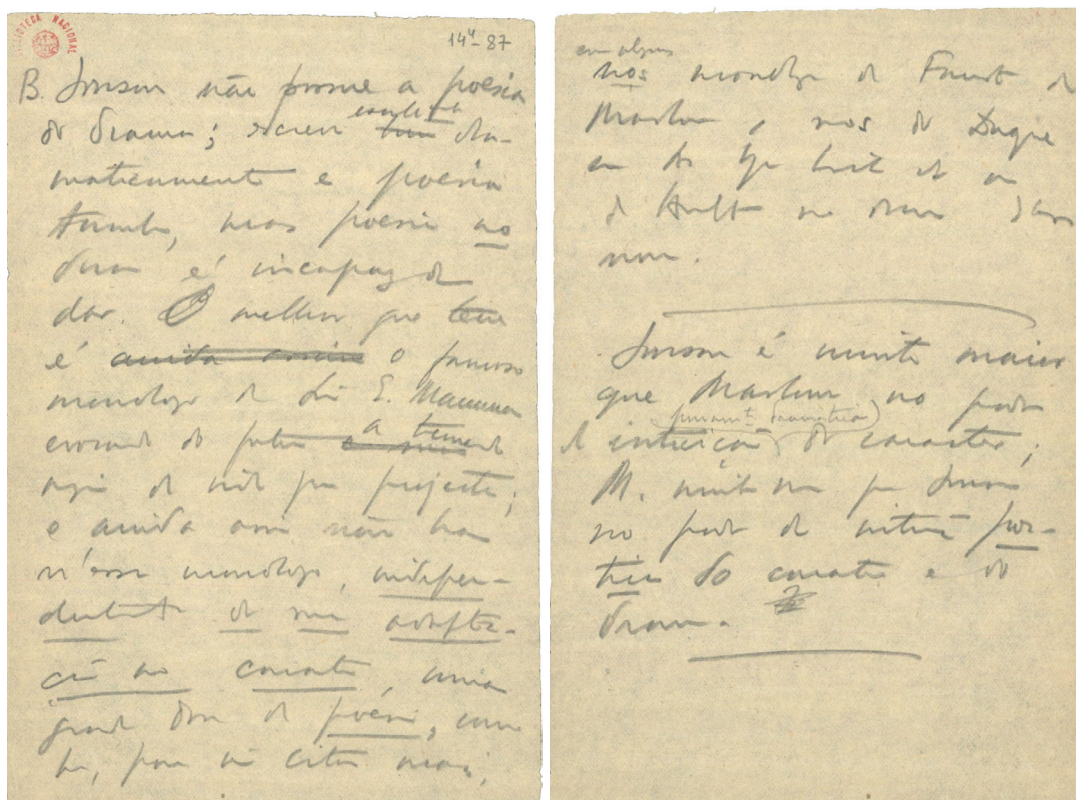 BIBLIOTECA NACIONAL
14⁴- 87
B. Jonson não possue a poesia
do drama; escreve excellente dra-
maticamente e poesia
tambem, mas poesia no
drama é incapaz de
dar. O melhor que tem
é ainda assim o famoso
monologo de Sir E. Mammon
evocando do futuro a
orgia de vida que projecta;
e ainda assim não ha
n'esse monologo, indepen-
dentemente de sua adapta-
ção ao caracter, uma
grande dose de poesia, como
ha, para não citar mais,
em alguns
nos monologos de Faust de
Marlowe, nos do Duque
em
de Hamlet no
Jonson é muito maior
que Marlowe no poder
puramente dramatica
de intuição do caracter;
M. muito maior que Jonson
no poder de intuição poe-
tica do caracter e do
drama.